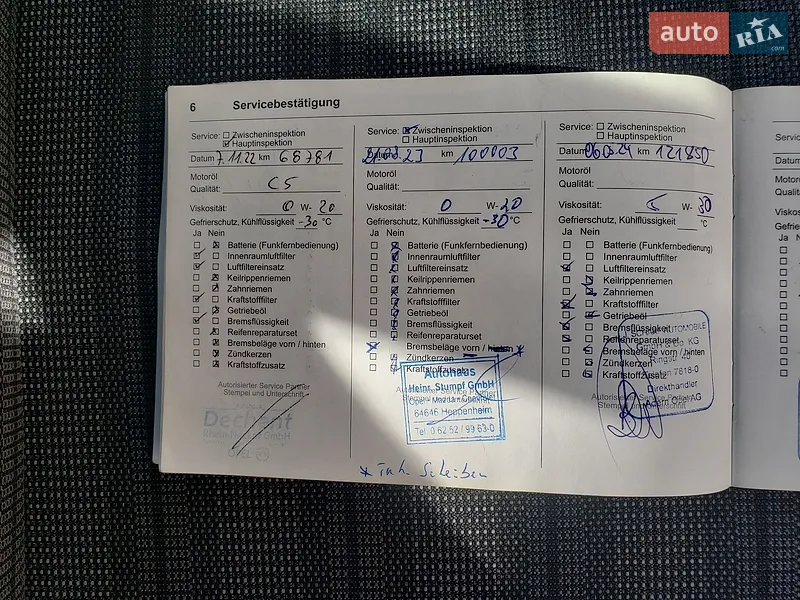 auto RIA.com
6 Servicebestätigung
Service: Zwischeninspektion
Hauptinspektion
Datum 7.11.22 km 68781
Motoröl
Qualität: C5
Viskosität: 0 W- 20
Gefrierschutz, Kühlflüssigkeit -30 °C
Ja Nein
Batterie (Funkfernbedienung)
Innenraumluftfilter
Luftfiltereinsatz
Keilrippenriemen
Zahnriemen
Kraftstofffilter
Getriebeöl
Bremsflüssigkeit
Reifenreparaturset
Bremsbeläge vorn / hinten
Zündkerzen
Kraftstoffzusatz
Autorisierter Service Partner
Stempel und Unterschrift
Dechent
OPEL
Service: Zwischeninspektion
Hauptinspektion
23 km 100003
Motoröl
Qualität:
Viskosität: 0 W- 20
Gefrierschutz, Kühlflüssigkeit -30 °C
Ja Nein
Batterie (Funkfernbedienung)
Innenraumluftfilter
Luftfiltereinsatz
Keilrippenriemen
Zahnriemen
Kraftstofffilter
Getriebeöl
Bremsflüssigkeit
Reifenreparaturset
Bremsbeläge vorn / hinten *
Zündkerzen
Kraftstoffzusatz
Autohaus
Heinr. Stumpf GmbH
64646 Heppenheim
Tel. 0 62 52 / 99 63-0
* Scheiben
Service: Zwischeninspektion
Hauptinspektion
Datum 24 km 121850
Motoröl
Qualität:
Viskosität: 5 W- 30
Gefrierschutz, Kühlflüssigkeit °C
Ja Nein
Batterie (Funkfernbedienung)
Innenraumluftfilter
Luftfiltereinsatz
Keilrippenriemen
Zahnriemen
Kraftstofffilter
Getriebeöl
Bremsflüssigkeit
Reifenreparaturset
Bremsbeläge vorn / hinten
Zündkerzen
Kraftstoffzusatz
AUTOMOBILE
GmbH & Co. KG
7618-0
Direkthändler
Adam Opel AG